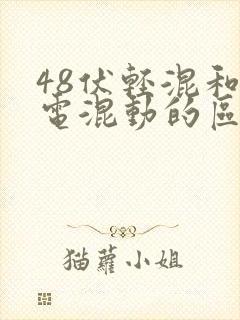 48伏輕混和
電混動的區
猫蘿小姐